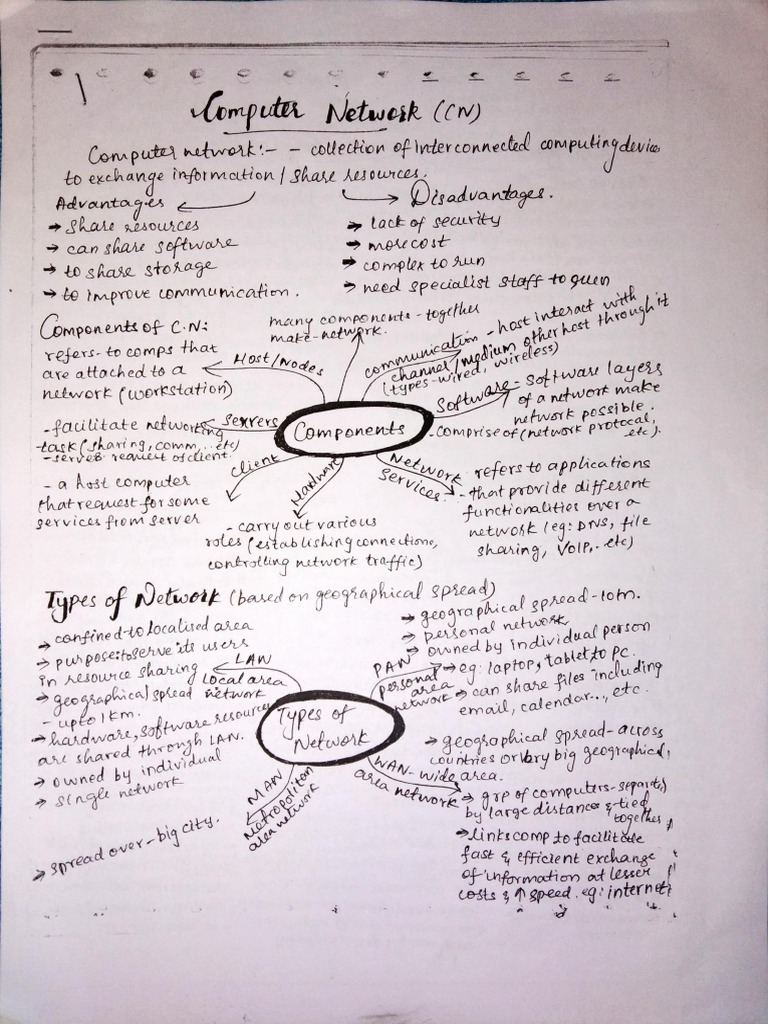 Computer Network (CN)
Computer network:- - collection of interconnected computing device
to exchange information / share resources.
Advantages
→ share resources
→ can share software
→ to share storage
→ to improve communication.
Disadvantages.
→ lack of security
→ more cost
→ complex to run
→ need specialist staff to
Components of C.N:
many components - together
make - network.
Host/Nodes
refers- to comps that
are attached to a
network (workstation)
communication - host interact with
channel/medium other host through it
(types-wired, wireless)
Software - software layers
of a network make
network possible.
- comprise of (network protocal,
etc).
Components
Servers
- facilitate networking
task (sharing, comm,.. etc)
- serves request of client.
Client
- a host computer
that request for some
services from server
Hardware
- carry out various
roles (establishing connections,
controlling network traffic)
Network
Services
refers to applications
- that provide different
functionalities over a
network (eg: DNS, file
sharing, VoIP,.. etc)
Types of Network (based on geographical spread)
→ confined to localised area
→ purpose: to serve its users
in resource sharing
→ geographical spread
- upto 1 km.
→ hardware, software resources
are shared through LAN.
→ owned by individual
→ single network
LAN
local area
network
Types of
Network
PAN
personal
area
network
→ geographical spread-10m.
→ personal network
→ owned by individual person
→ eg: laptop, tablet to PC.
→ can share files including
email, calendar..., etc.
MAN
Metropolitan
area network
→ spread over - big city.
WAN- wide
area network
→ geographical spread- across
countries or very big geographical
area.
→ grp of computers - separated
by large distance & tied
together
→ links comp to facilitate
fast & efficient exchange
of information at lesser
costs & ↑ speed. eg: internet